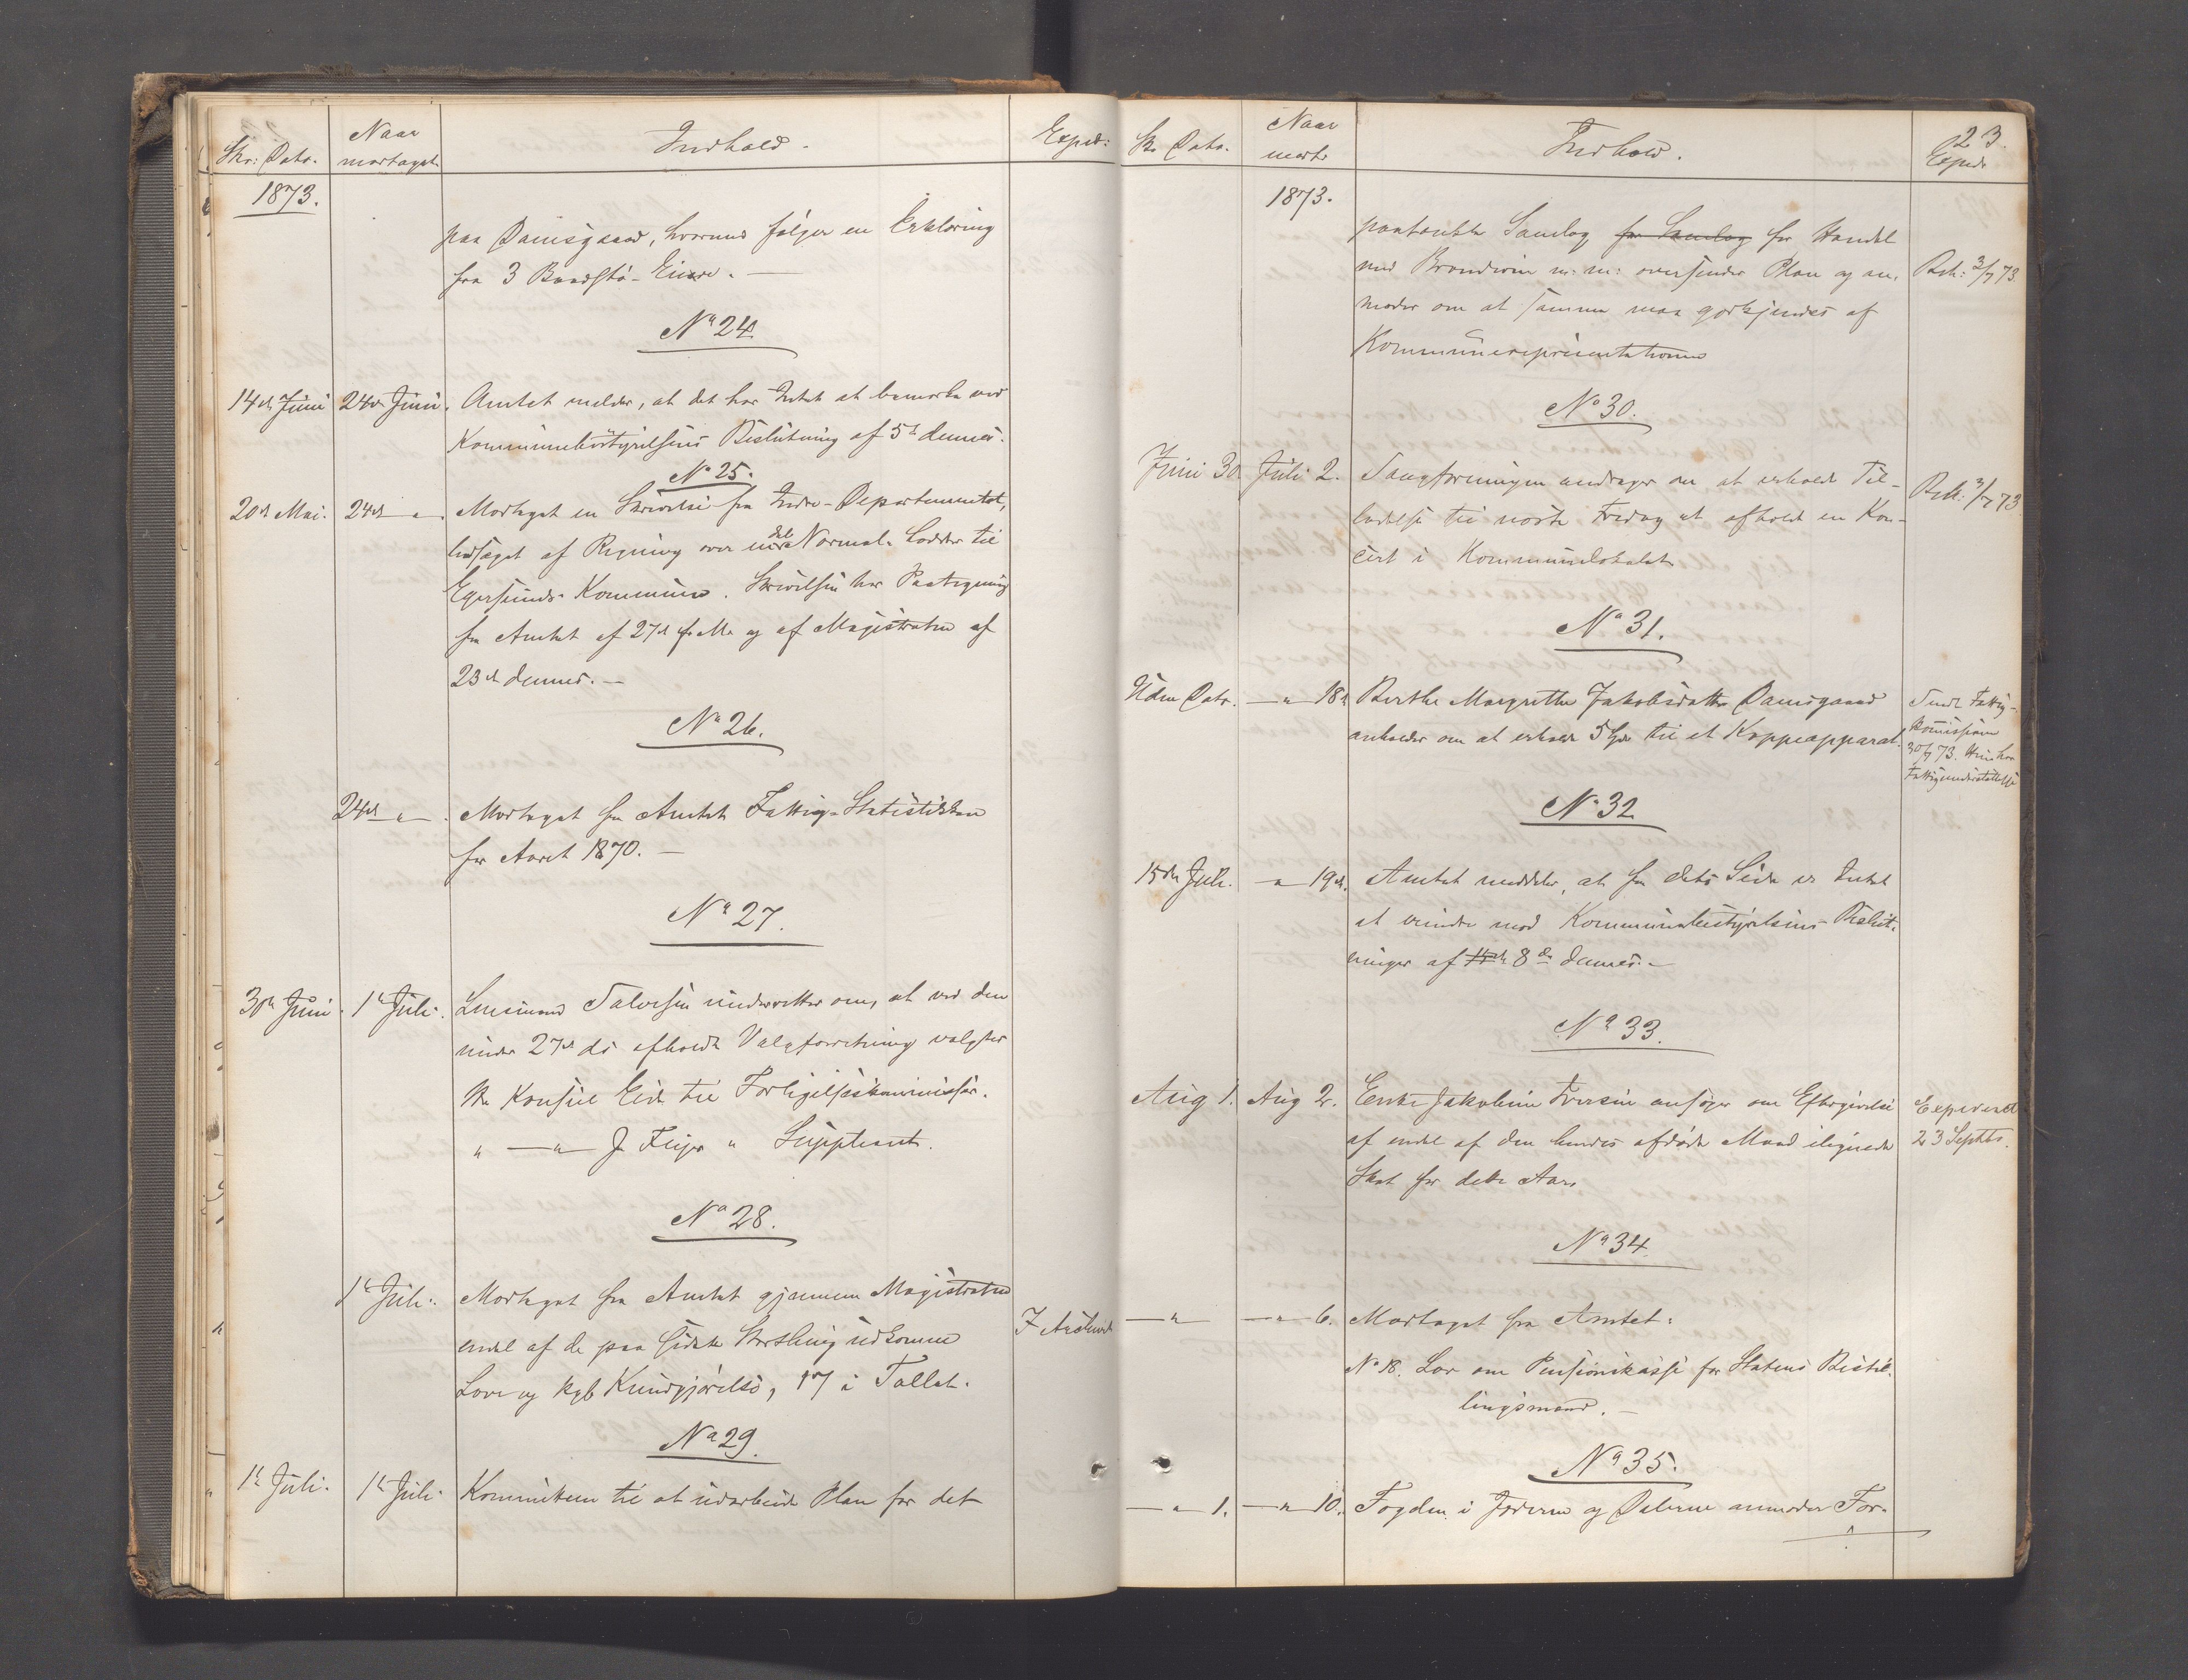 Skr: Dato.
Naar
modtaget.
Indhold.
Exped:
1873.
paa Damsgaard, hvormed følger en Erklæring
fra 3 Baadstø-Eiere. —
No 24.
14de Juni 24de Juni. Amtet melder, at det har Intet at bemærke ved
Kommunebestyrelsens Beslutning af 5te dennes.
No 25.
20de Mai. 24de " . Modtaget en Skrivelse fra Indre-Departementet,
ledsaget af Regning over del Normal-Lodder til
Egersunds Kommune. Skrivelsen har Paategning
fra Amtet af 27de f. M. og af Magistraten af
23de dennes. —
No 26.
24de — " — . Modtaget fra Amtet Fattig-Statistikken
for Aaret 1870. —
No 27.
30te Juni. 1te Juli. Lensmand Salvesen underretter om, at ved den
under 27de ds afholdte Valgforretning valgtes
Hr Konsul Eide til Forligelseskommissær.
" — " J. Feyer " Suppleant.
No 28.
1te Juli. Modtaget fra Amtet gjennem Magistraten
endel af de paa sidste Storthing udkomne
Love og kgl. Kundgjørelse, 17 i Tallet.
I Archivet
No 29.
1te Juli. 1te Juli. Kommiteen til at udarbeide Plan for det
23.
Skr Dato.
Naar
modt.
Indhold.
Exped.
1873.
paatænkte Samlag for Samlag for Handel
med Brændeviin m: m: oversender Plan og an-
moder om at samme maa godkjendes af
Kommunerepræsentationen
Besk: 3/7 73.
No 30.
Juni 30. Juli 2. Sangforeningen andrager om at erholde Til-
ladelse til næste Fredag at afholde en Kon-
cert i Kommunelokalet.
Besk: 3/7 73.
No 31.
Uden Dato. — " 18de Berthe Margrethe Jakobsdatter Damsgaard
anholder om at erholde 5 Spd. til et Koppeapparat.
Sendt Fattig-
kommissionen
30/7 73. Hun har
Fattigunderstøttelse
No 32.
15de Juli. — " 19de. Amtet meddeler, at fra dets Side er Intet
at erindre mod Kommunebestyrelsens Beslut-
ninger af 15de 8de dennes. —
No 33.
Aug 1. Aug 2. Enke Jakobine Iversen ansøger om Eftergivelse
af endel af den hendes afdøde Mand ilignede
Skat for dette Aar.
Expederet
23 Septbr.
No 34.
— " — " 6. Modtaget fra Amtet:
No 18. Lov om Pensionskasse for Statens Bestil-
lingsmænd. —
No 35.
— " 1. — " 10. Fogden i Jæderen og Dalerne anmoder For-